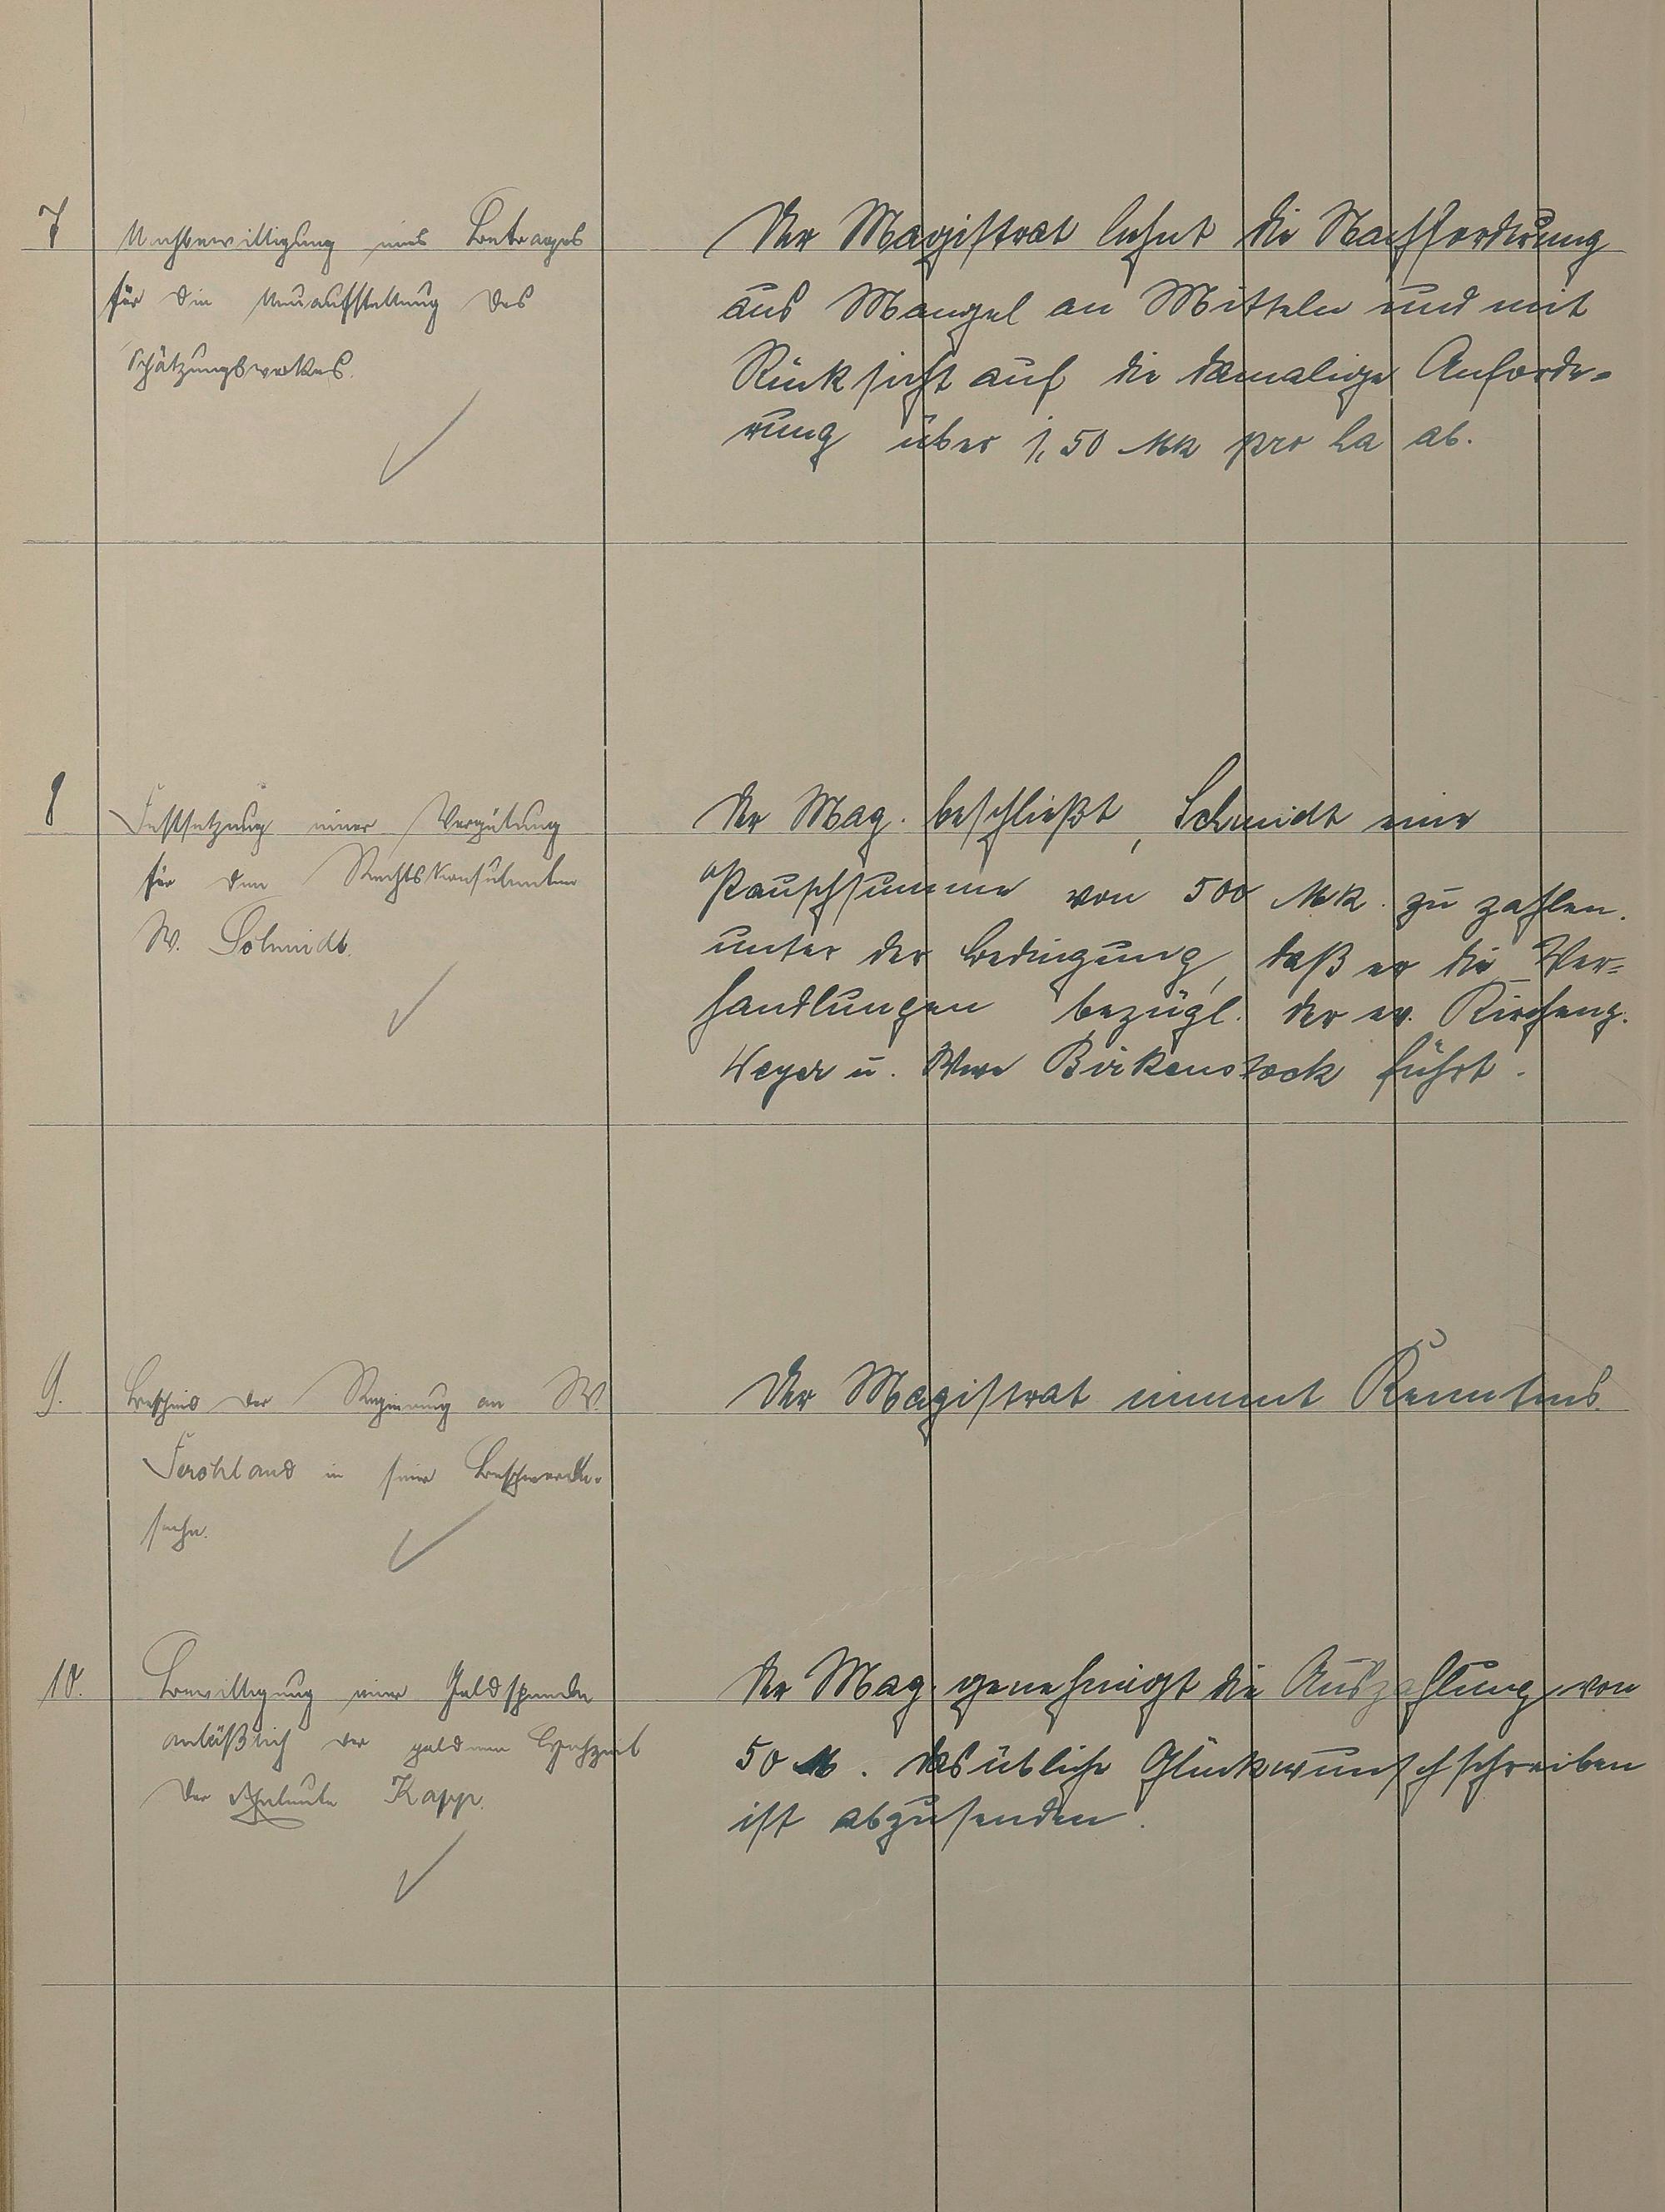 7
Nachbewilligung eines Betrages
für die Neuaufstellung des
Schätzungswerkes.
Der Magistrat lehnt die Nachforderung
aus Mangel an Mitteln und mit
Rücksicht auf die damalige Anforde=
rung über 1,50 Mk pro ha ab.
8
Festsetzung einer Vergütung
für den Rechtskonsulenten
W. Schmidt.
Der Mag. beschließt, Schmidt eine
Pauschsumme von 500 Mk. zu zahlen.
unter der Bedingung, daß er die Ver=
handlungen bezügl. der ev. Kircheng.
Weyer u. Wwe Birkenstock führt.
9.
Bescheid der Regierung an W.
Ferohland in seiner Beschwerde=
sache.
Der Magistrat nimmt Kenntnis.
10.
Bewilligung einer Geldspende
anläßlich der goldenen Hochzeit
der Eheleute Kapp.
Der Mag. genehmigt die Auszahlung von
50 M. Das übliche Glückwunschschreiben
ist abzusenden.